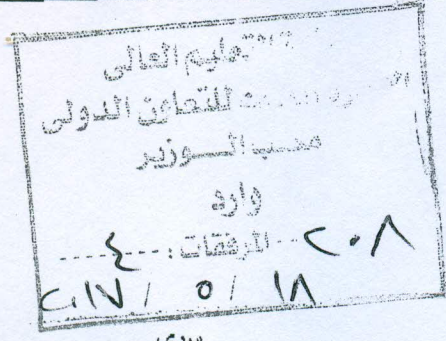 التعليم العالى
للتعاون الدولى
مكتب الـــوزير
وارد
٢٠٨ المرفقات : ٤
٢٠١٧ / ٥ / ١٨